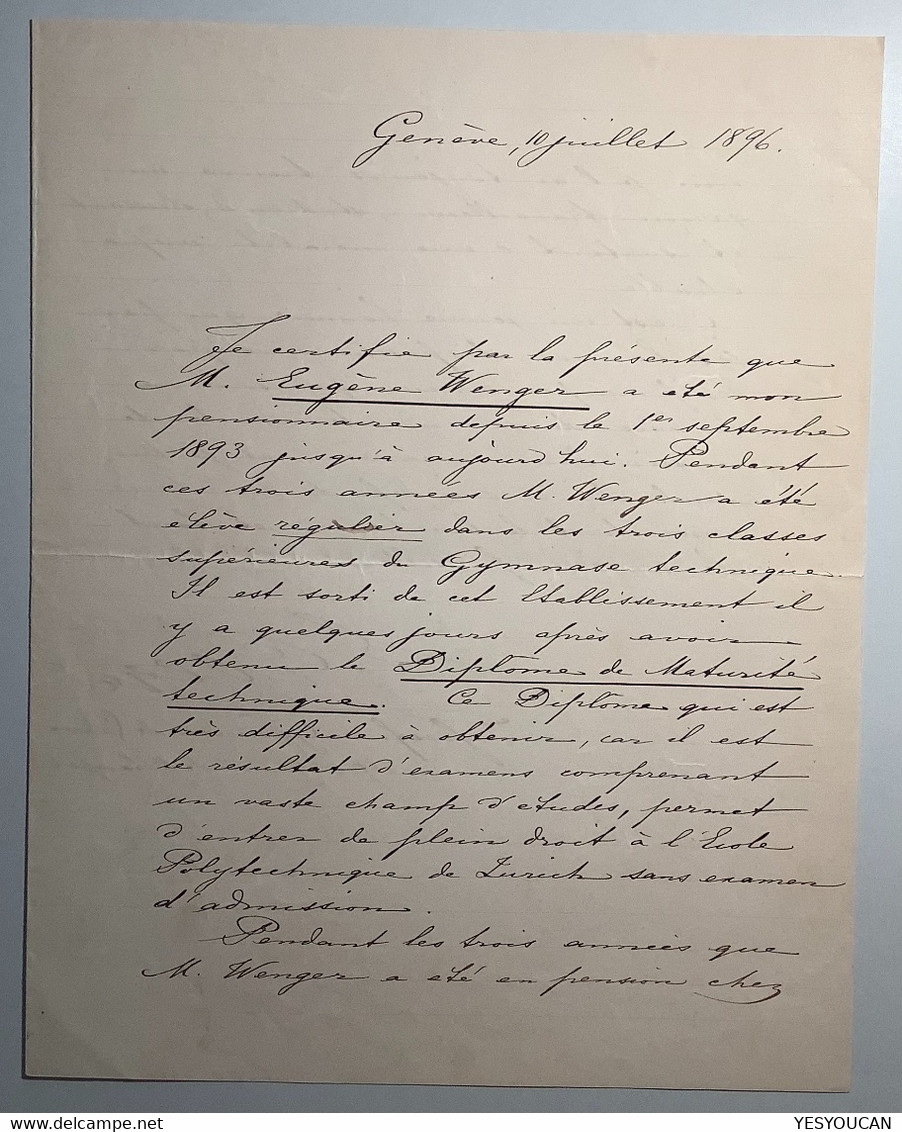 Genève, 10 juillet 1896.
Je certifie par la présente que
M. Eugène Wenger a été mon
pensionnaire depuis le 1er septembre
1893 jusqu'à aujourd'hui. Pendant
ces trois années M. Wenger a été
elève régulier dans les trois classes
supérieures du Gymnase technique.
Il est sorti de cet Etablissement il
y a quelques jours après avoir
obtenu le Diplôme de Maturité
technique. Ce Diplôme qui est
très difficile à obtenir, car il est
le résultat d'examens comprenant
un vaste champ d'études, permet
d'entrer de plein droit à l'Ecole
Polytechnique de Zurich sans examen
d'admission.
Pendant les trois années que
M. Wenger a été en pension chez
YESYOUCAN